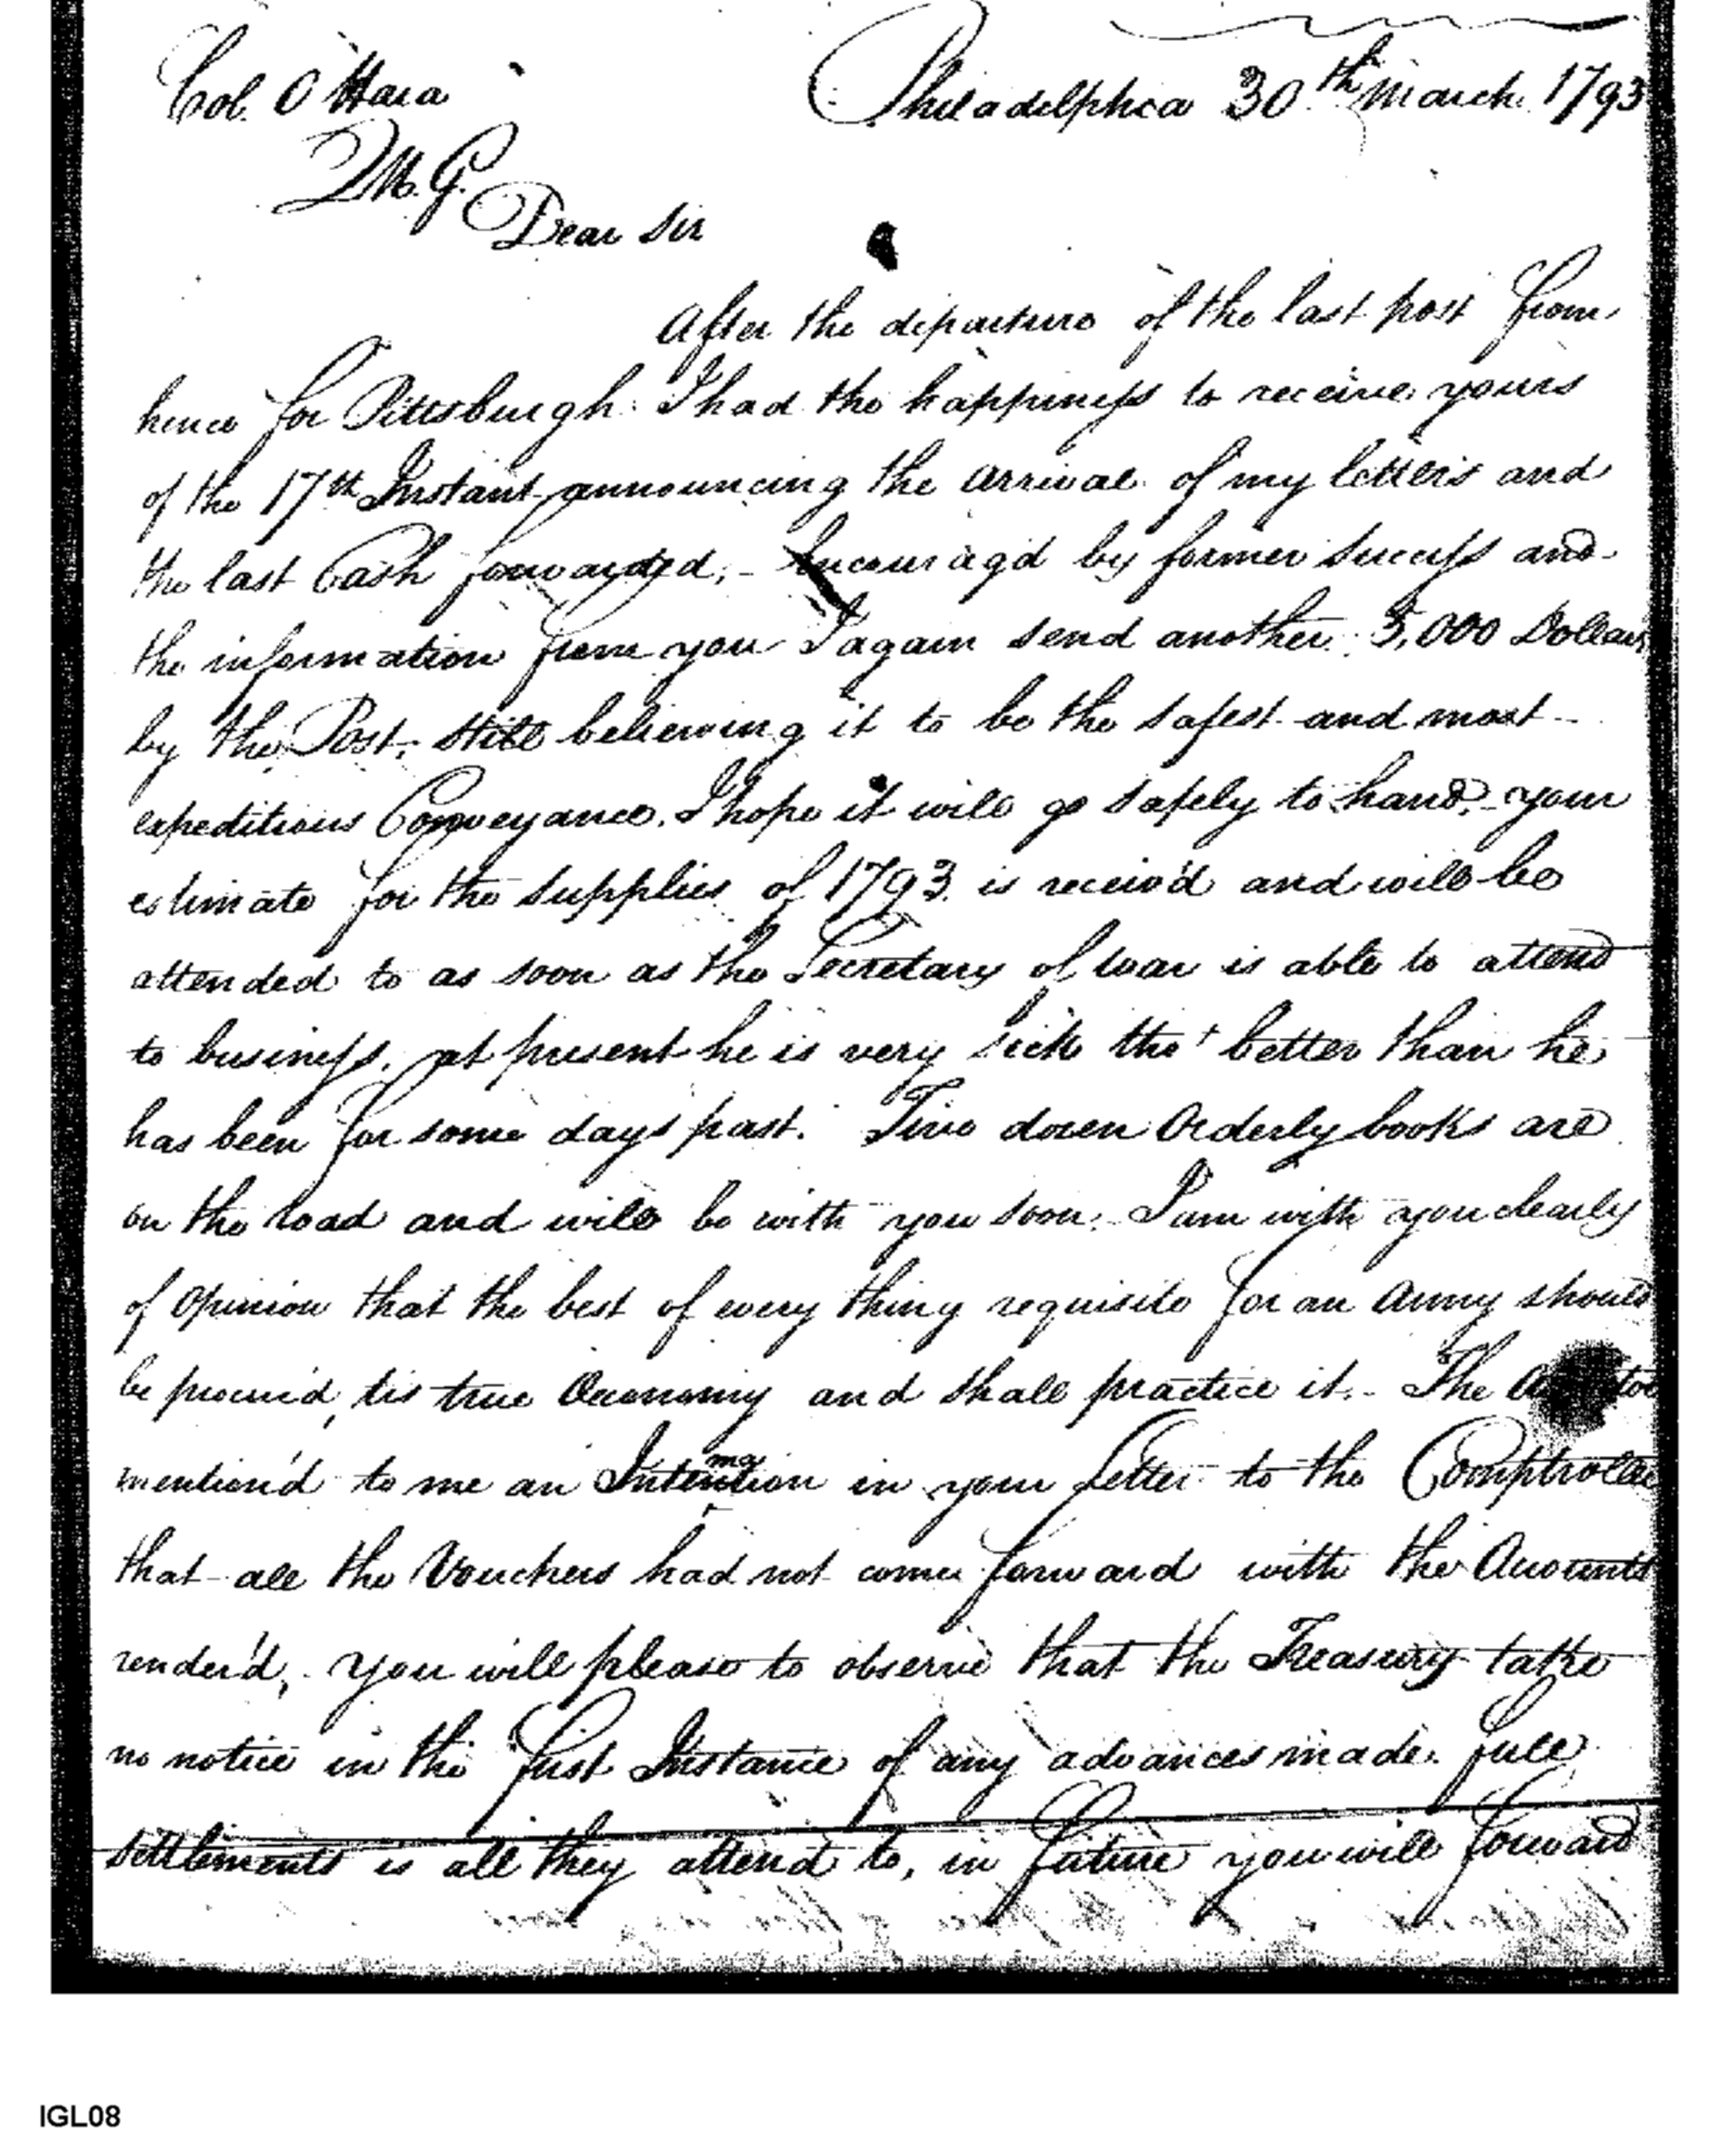 Col. O Hara
Philadelphia 30th March 1793
Q M. G.
Dear Sir
After the departure of the last post from
hence for Pittsburgh. I had the happiness to receive yours
of the 17th Instant announcing the arrival of my letters and
the last Cash forwarded, - Encourag'd by former Success and
the information from you I again send another 5,000 Dollars
by the Post, still believing it to be the safest and most
expeditious Conveyance. I hope it will go safely to hand, - your
estimate for the supplies of 1793 is receiv'd and will be
attended to as soon as the Secretary of war is able to attend
to business. at present he is very sick tho' better than he
has been for some days past. Two dozen Orderly books are
on the road and will be with you soon. I am with you clearly
of Opinion that the best of every thing requisite for an Army should
be procur'd, tis true Oeconomy and shall practice it. - The
mention'd to me an Intention ma in your Letter to the Comptroller
that all the Vouchers had not come forward with the Accounts
render'd, you will please to observe that the Treasury take
no notice in the first Instance of any advances made. full
settlements is all they attend to, in future you will forward
IGL08